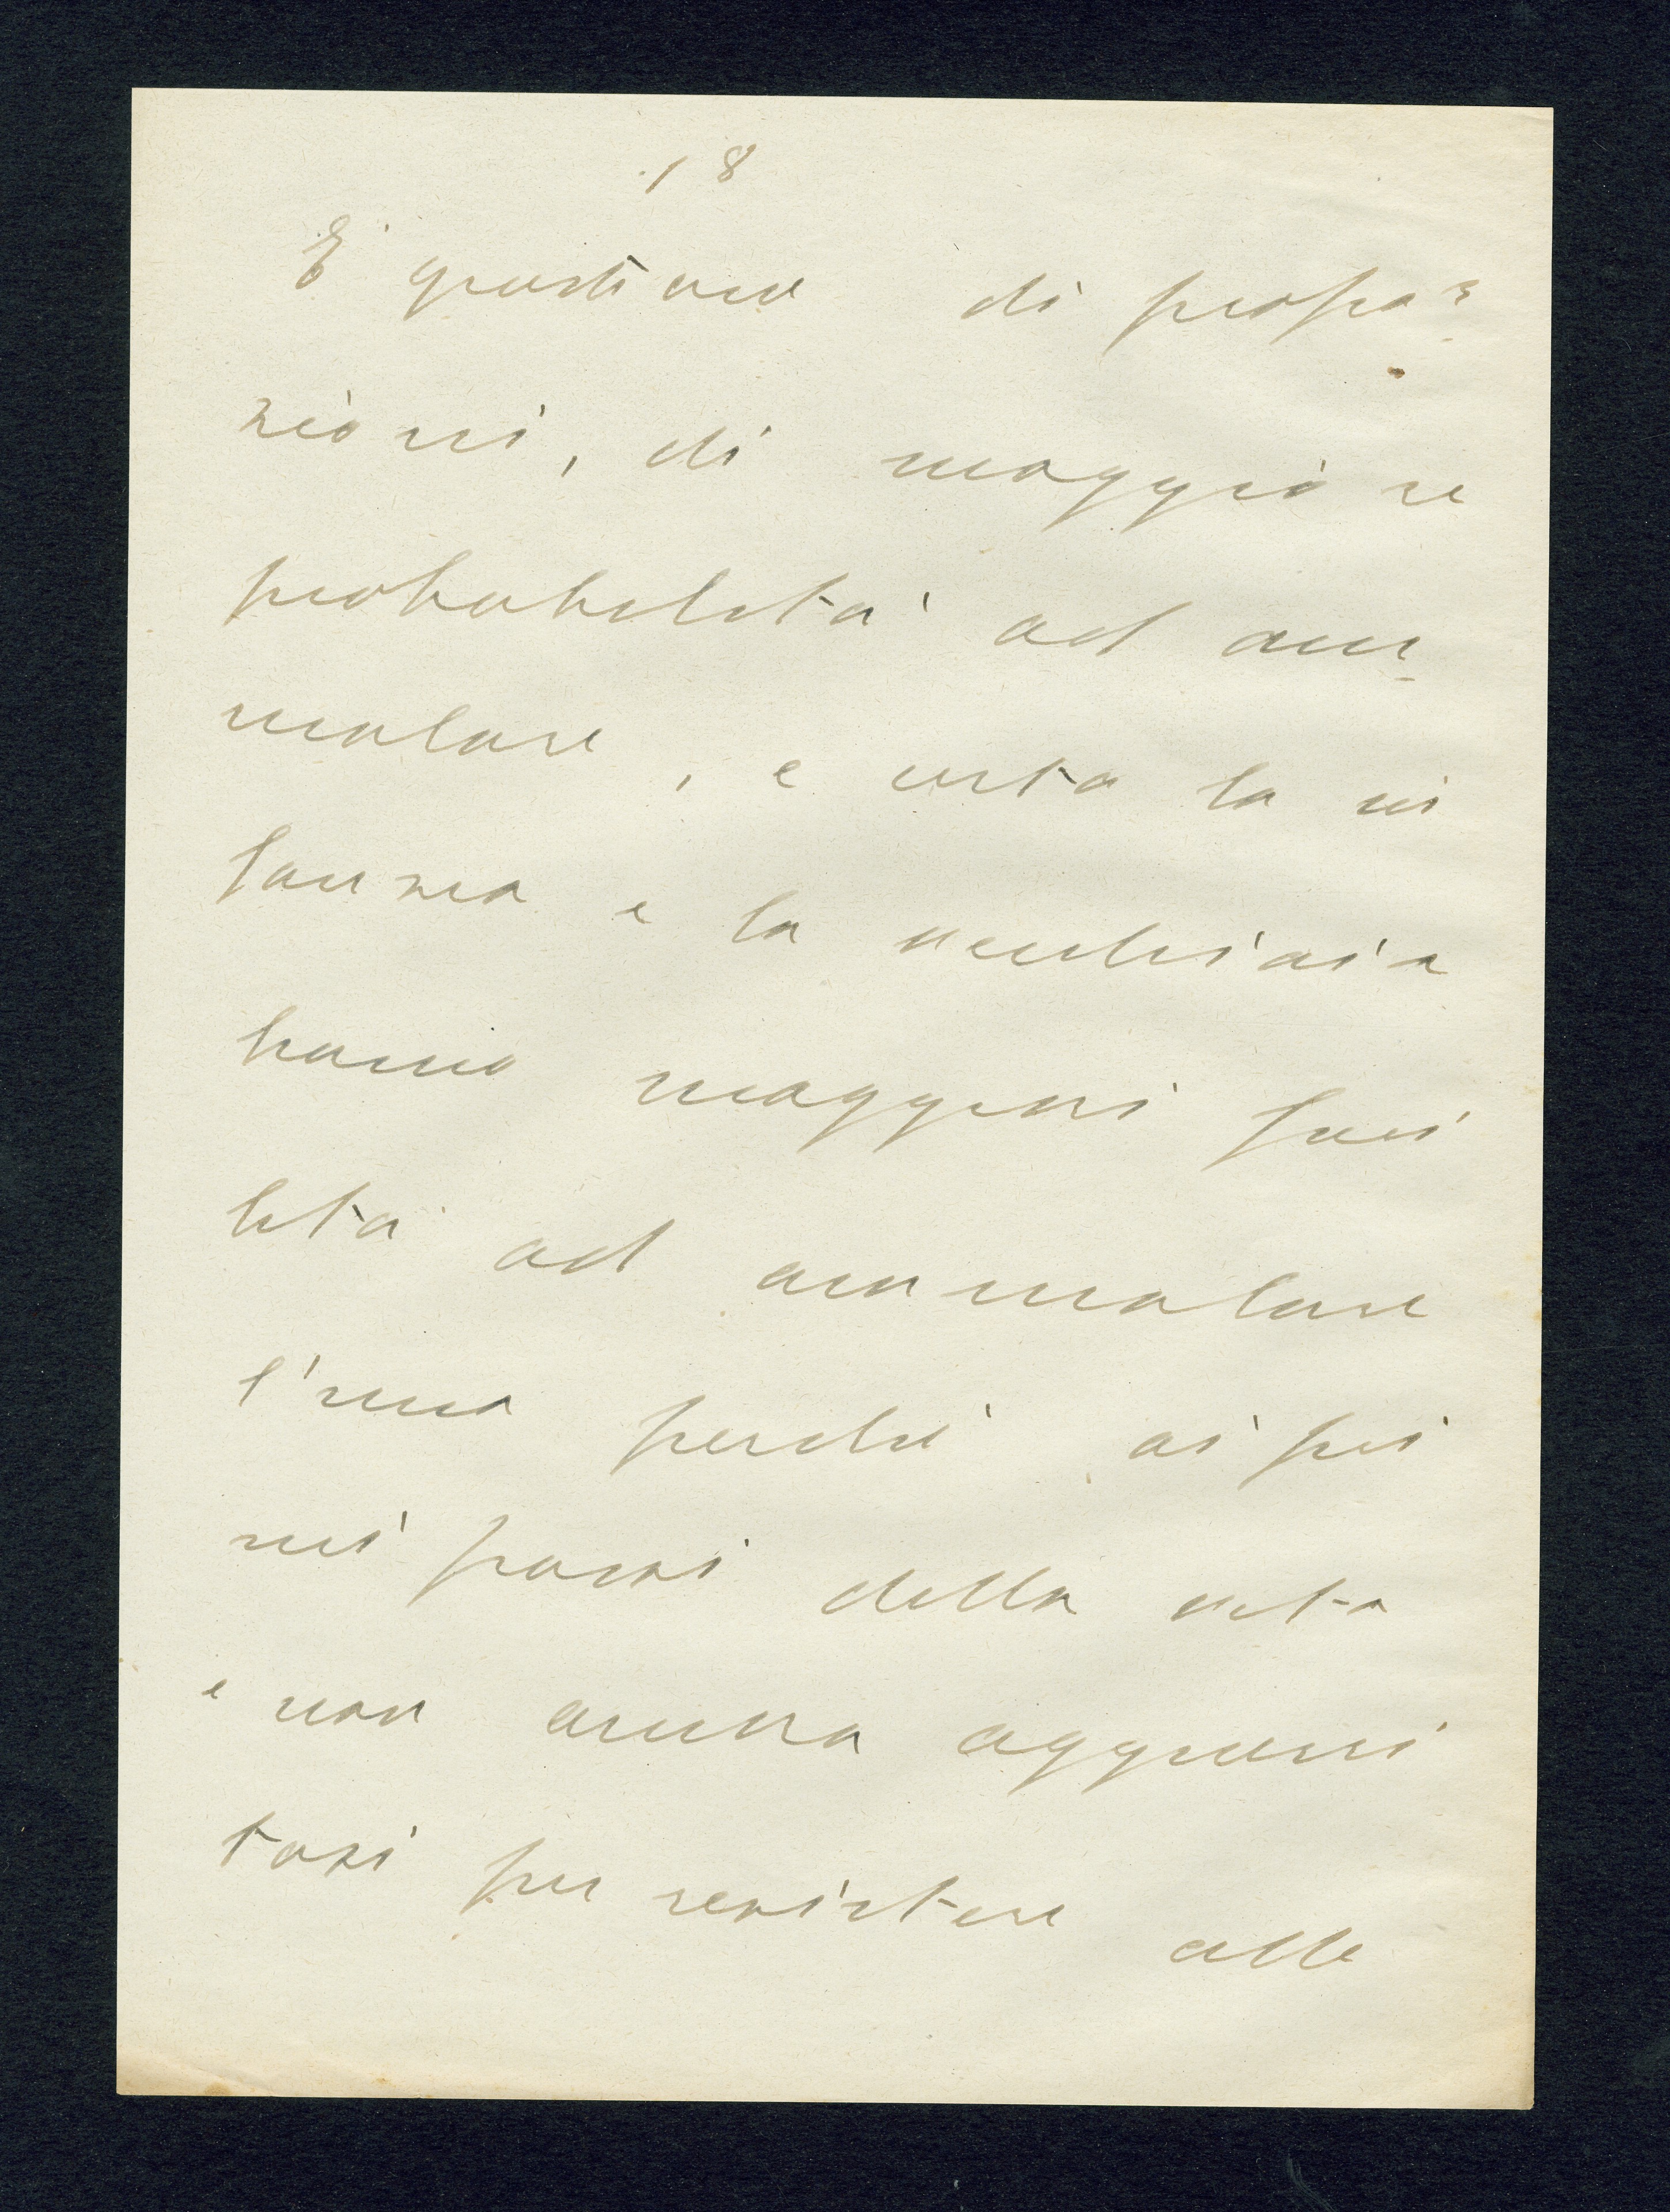 18
E' questione di propor
zioni, di maggiore
probabilità ad am
malare, e certo la in
fanzia e la vecchiaia
hanno maggiori faci
lità ad ammalare
l'una perchè ai pri
mi passi della vita
e non ancora agguerri
tasi per resistere alle